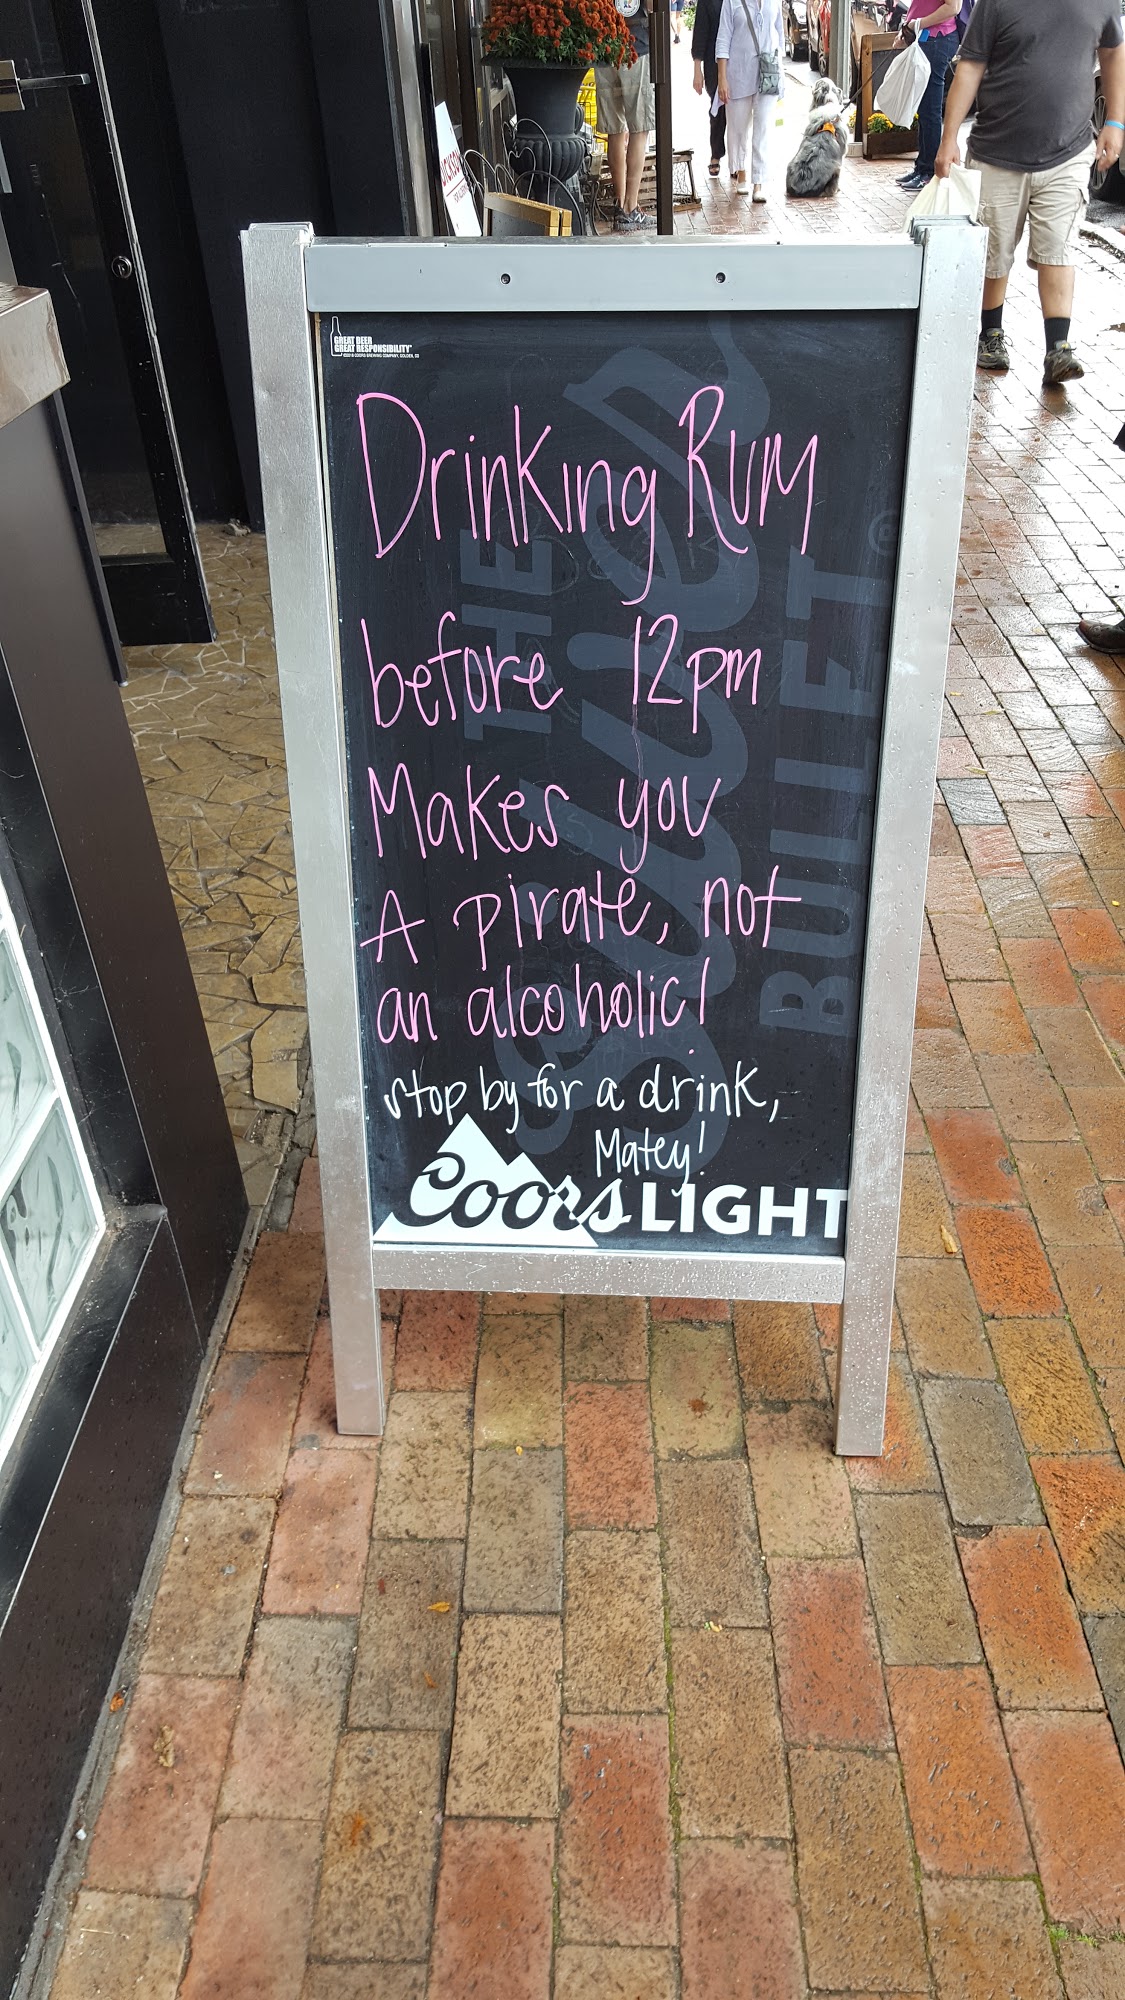 GREAT BEER
GREAT RESPONSIBILITY®
©2016 COORS BREWING COMPANY, GOLDEN, CO
Drinking Rum
before 12pm
Makes you
A pirate, not
an alcoholic!
stop by for a drink,
Matey!
Coors LIGHT
THE
Silver
BULLET®